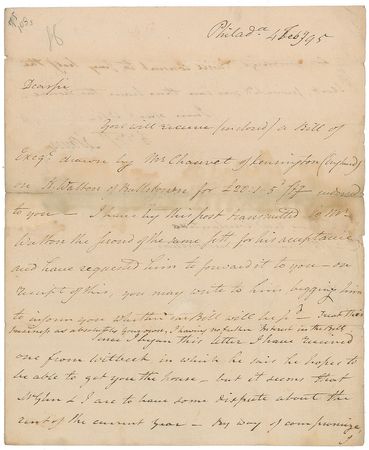 Philad.a 4 Feby 95
Dear Sir
You will receive (inclosed) a Bill of
Exc.e drawn by Mr Chauvet of Kensington (England)
on Watton of for £22.. 5 Stg indorsed
to you — I have by this post transmitted to Mr.
Watton the second of the same sett, for his acceptance
and have requested him to forward it to you — on
receipt of this, you may write to him begging him
to inform you whether said Bill will be p.d — Treat this
business as absolutely your own, I having no further interest in the Bill
Since I began this letter I have received
one from Witbeck in which he said he hopes to
be able to get you the house — but it seems that
Mr Glen & I are to have some dispute about the
rent of the current year — By way of compromise,
I